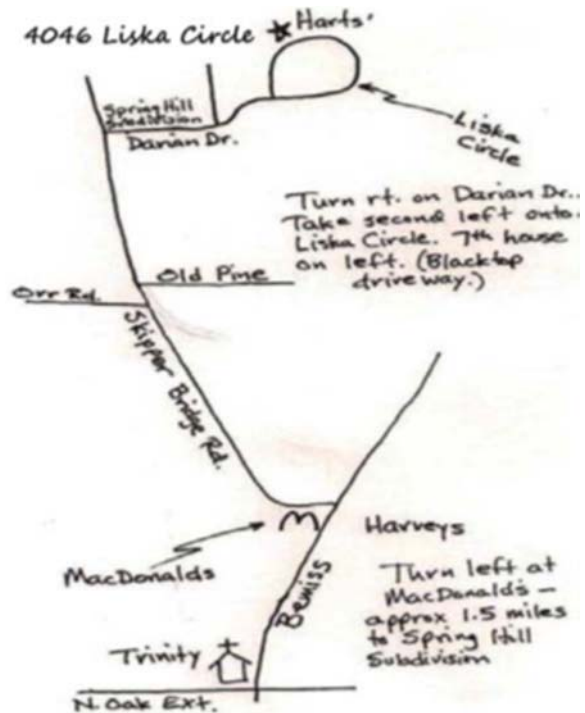 4046 Liska Circle
Harts'
Spring Hill
Subdivision
Darian Dr.
Liska
Circle
Turn rt. on Darian Dr..
Take second left onto
Liska Circle. 7th house
on left. (Blacktop
driveway.)
Old Pine
Orr Rd.
Skipper Bridge Rd.
Harveys
MacDonalds
Turn left at
MacDonalds —
approx 1.5 miles
to Spring Hill
Subdivision
Bemiss
Trinity
N. Oak Ext.